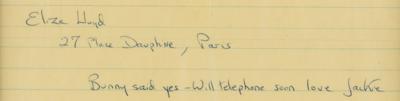 Eliza Lloyd
27 Place Dauphine, Paris
Bunny said yes - Will telephone soon love Jackie